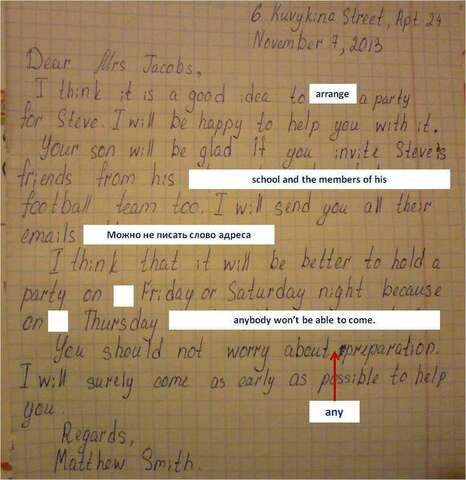 6. Kuvykina Street, Apt 24
November 7, 2013
Dear Mrs Jacobs,
I think it is a good idea to arrange a party
for Steve. I will be happy to help you with it.
Your son will be glad if you invite Steve's
friends from his school and the members of his
football team too. I will send you all their
emails Можно не писать слово адреса
I think that it will be better to hold a
party on Friday or Saturday night because
on Thursday anybody won't be able to come.
You should not worry about preparation.
I will surely come as early as possible to help
you.
any
Regards,
Matthew Smith.